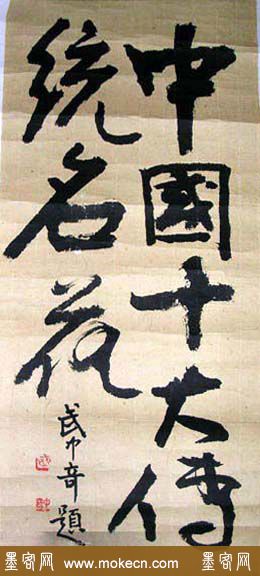 中國十大傳
統名花
武中奇題
墨客网 www.mokecn.com 墨客网